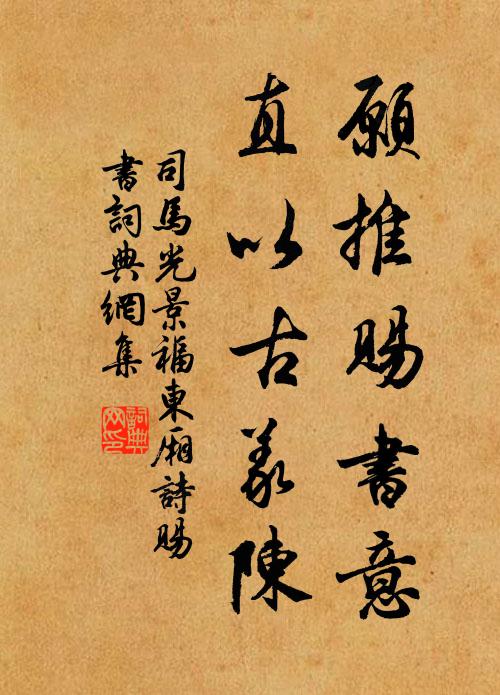 願推賜書意
直以古義陳
司馬光景福東廂詩賜
書詞典網集
詞典
网印